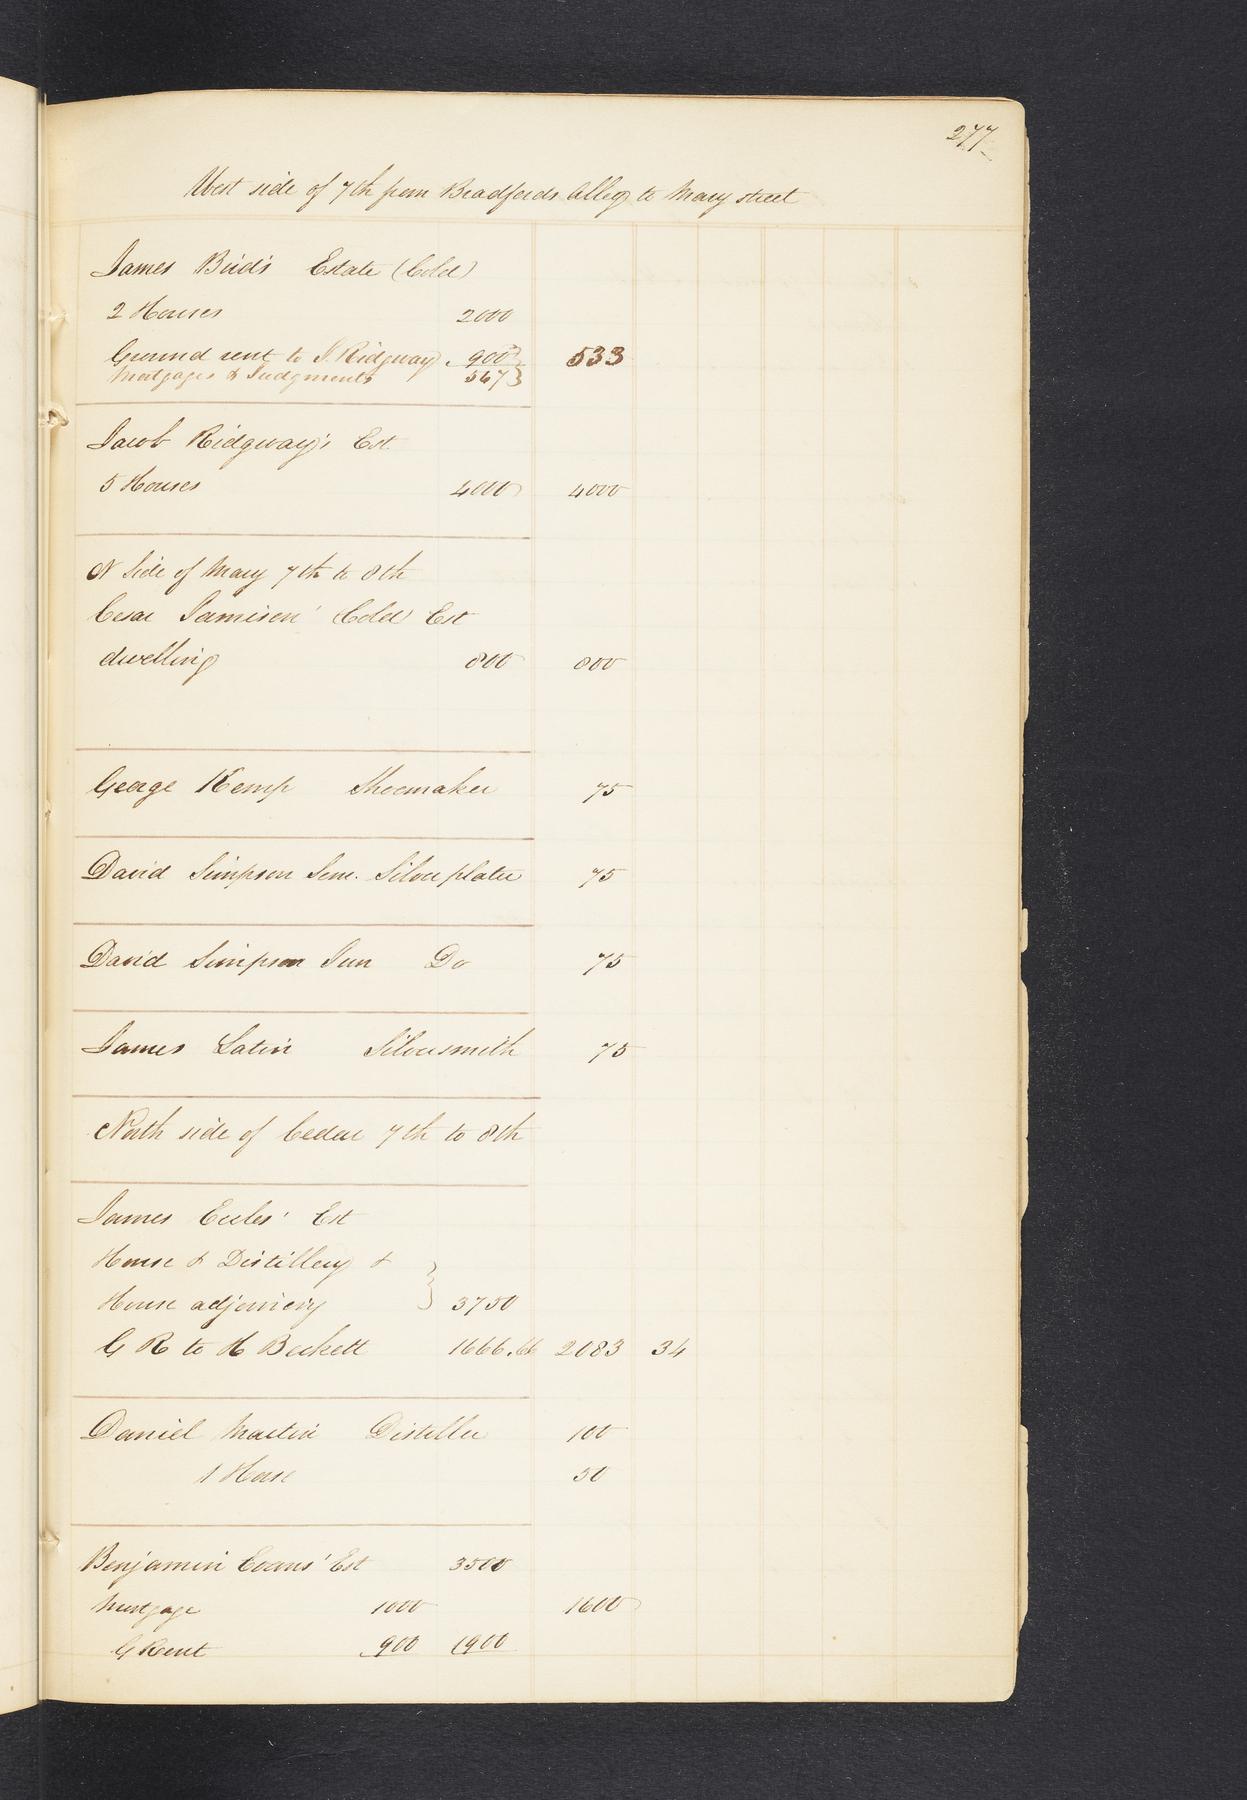 277
West side of 7th from Bradfords Alley to Mary street
James Bird's Estate (Cold)
2 Houses 2000
Ground rent to J. Ridgway 900 533
Mortgages & Judgments 567
Jacob Ridgway's Est
5 Houses 4000 4000
N Side of Mary 7th to 8th
Cesar Jamison' (Cold) Est
dwelling 800 800
George Kemp Shoemaker 75
David Simpson Senr. Silver plater 75
David Simpson Jun Do 75
James Latin Silversmith 75
North side of Cedar 7th to 8th
James Eccles' Est
House & Distillery &
House adjoining 3750
G R to H Beckett 1666.66 2083 34
Daniel Martin Distiller 100
1 Horse 50
Benjamin Evans' Est 3500
Mortgage 1000 1600
G Rent 900 1900